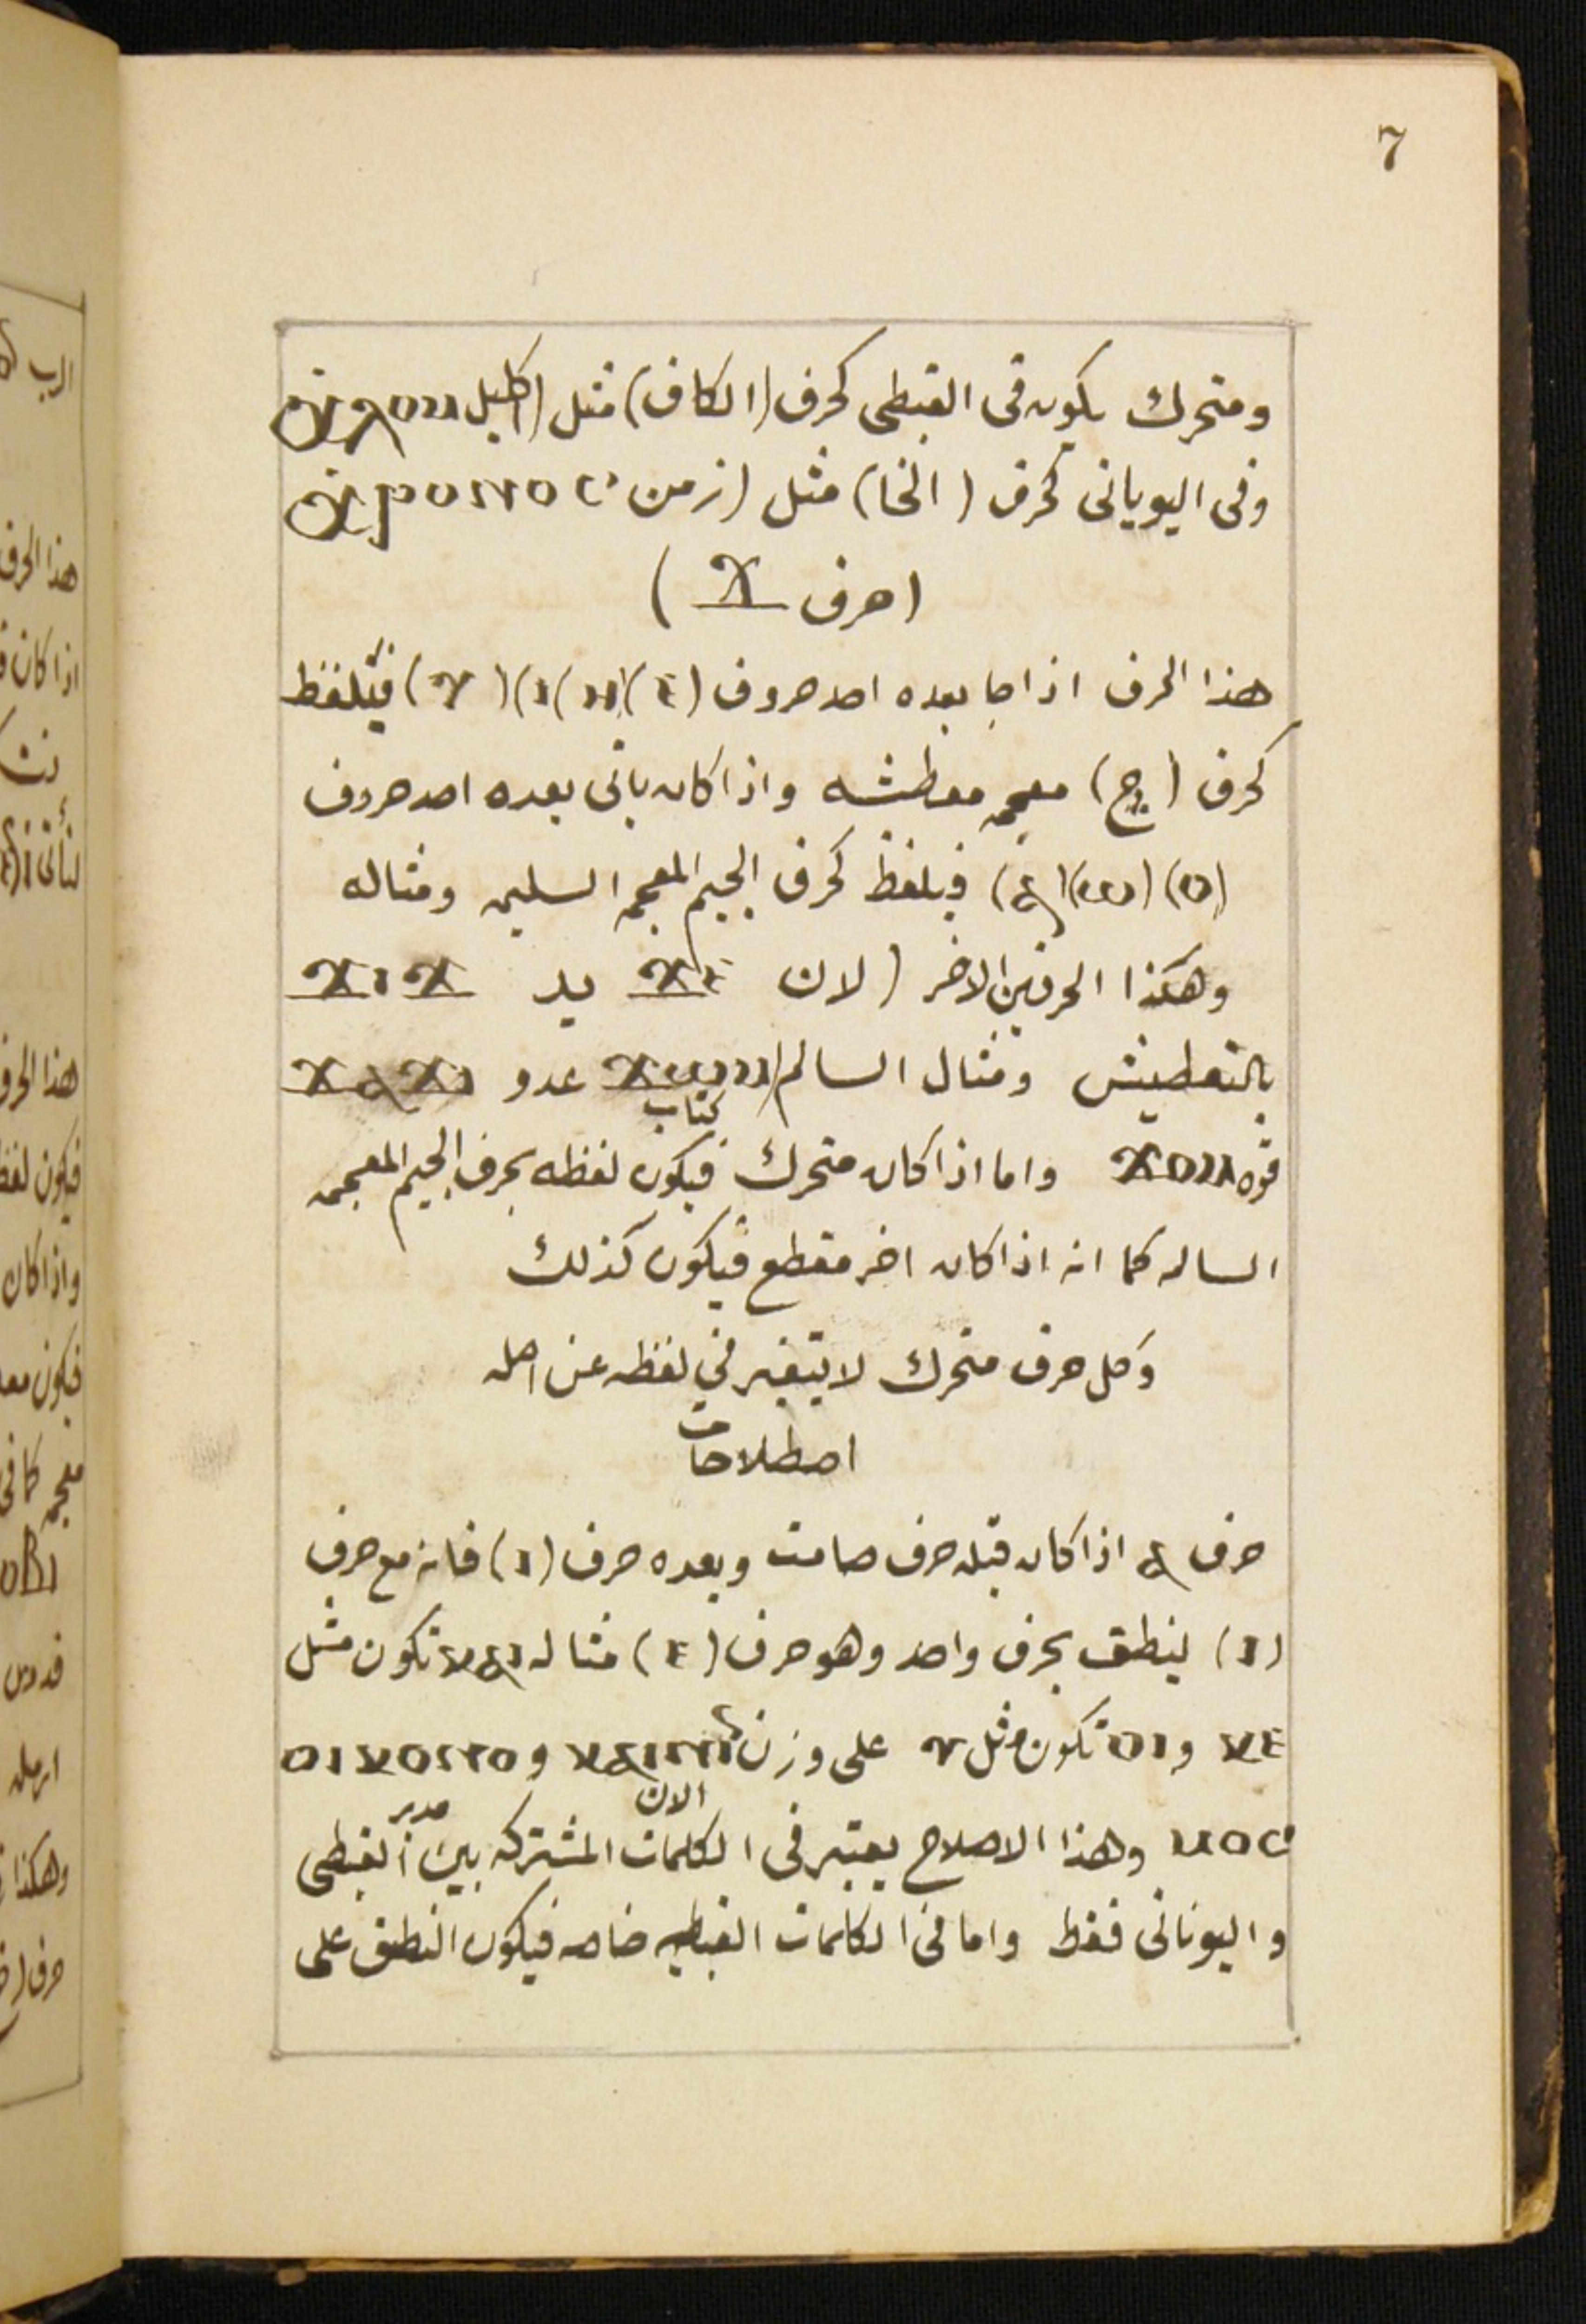 7
ومتحرك يكون فى القبطى كحرف (الكاف) مثل (اكليل ⲭⲗⲟⲙ
وفى اليويانى كحرف (الخا) مثل (زمن ⲭⲣⲟⲛⲟⲥ
(حرف ϫ)
هذا الحرف اذا جا بعده احد حروف (ⲉ)(ⲏ)(ⲓ)(ⲩ) فيتلفظ
كحرف (ج) معجمه معطشه واذا كان ياتى بعده احد حروف
(ⲟ)(ⲱ)(ⲁ) فيلفظ كحرف الجيم المعجمه السليمه ومثاله
وهكذا الحرفين الاخر (لان ϫⲉ يد ϫⲓϫ
بالتعطيش ومثال السالم (ϫⲱⲙ كتاب عدو ϫⲁϫⲓ
قوه ϫⲟⲙ واما اذا كان متحرك فيكون لفظه بحرف الجيم المعجمه
الساله كما انه اذا كان اخر مقطع فيكون كذلك
وكل حرف متحرك لا يتغير في لفظه عن اصله
اصطلاحات
حرف ⲁ اذا كان قبله حرف صامت وبعده حرف (ⲓ) فانه مع حرف
(ⲓ) ينطق بحرف واحد وهو حرف (ⲉ) مثاله ⲕⲁⲓ تكون مثل
ⲕⲉ و ⲟⲓ تكون مثل ⲩ على وزن ⲕⲁⲓⲛⲏ الان و ⲟⲓⲕⲟⲛⲟ
ⲙⲟⲥ مدبر وهذا الاصلاح يعتبر فى الكلمات المشتركه بين القبطى
واليونانى فقط واما فى الكلمات القبطيه خاصه فيكون النطق على